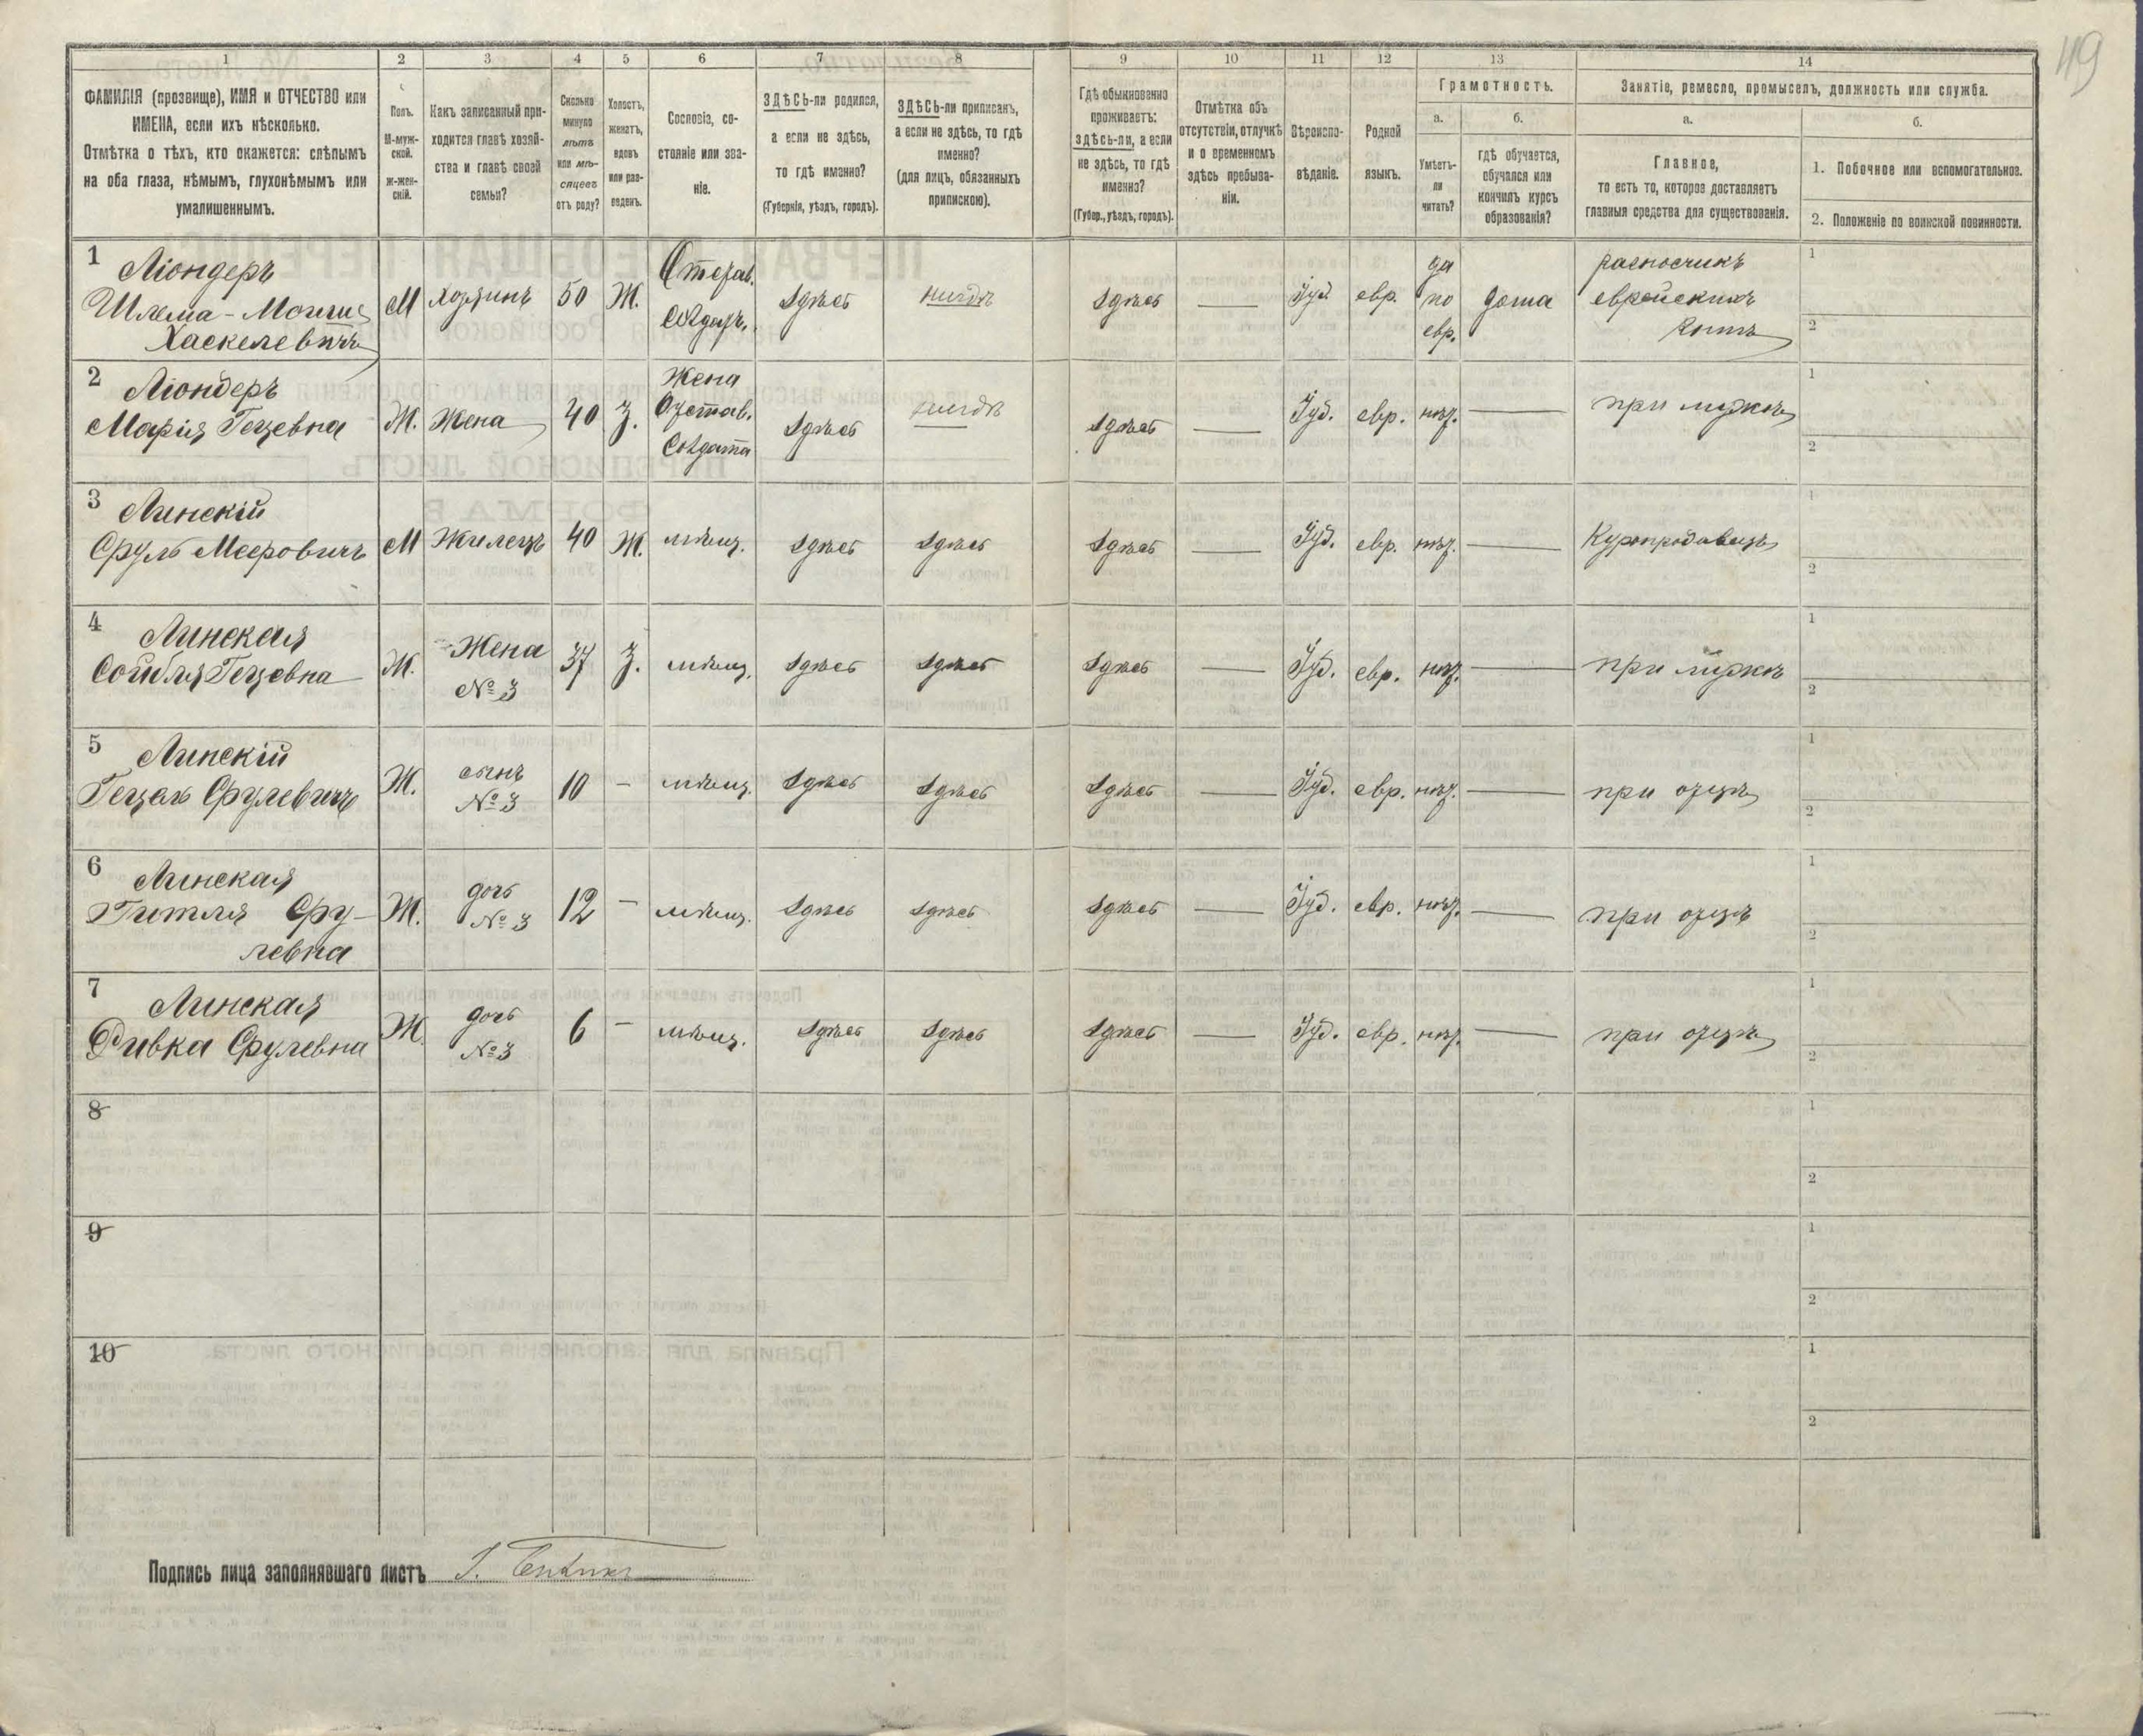 49
1 2 3 4 5 6 7 8 9 10 11 12 13 14
ФАМИЛІЯ (прозвище), ИМЯ и ОТЧЕСТВО или
ИМЕНА, если ихъ нѣсколько.
Отмѣтка о тѣхъ, кто окажется: слѣпымъ
на оба глаза, нѣмымъ, глухонѣмымъ или
умалишеннымъ.
Полъ.
М-муж-
ской.
Ж-жен-
скій.
Какъ записанный при-
ходится главѣ хозяй-
ства и главѣ своей
семьи?
Сколько
минуло
лѣтъ
или мѣ-
сяцевъ
отъ роду?
Холостъ,
женатъ,
вдовъ
или раз-
веденъ.
Сословіе, со-
стояніе или зва-
ніе.
ЗДѢСЬ-ли родился,
а если не здѣсь,
то гдѣ именно?
(Губернія, уѣздъ, городъ).
ЗДѢСЬ-ли приписанъ,
а если не здѣсь, то гдѣ
именно?
(для лицъ, обязанныхъ
припискою).
Гдѣ обыкновенно
проживаетъ:
здѣсь-ли, а если
не здѣсь, то гдѣ
именно?
(Губер., уѣздъ, городъ).
Отмѣтка объ
отсутствіи, отлучкѣ
и о временномъ
здѣсь пребыва-
ніи.
Вѣроиспо-
вѣданіе.
Родной
языкъ.
Грамотность.
а.
Умѣетъ-
ли
читать?
б.
гдѣ обучается,
обучался или
кончилъ курсъ
образованія?
Занятіе, ремесло, промыселъ, должность или служба.
а.
Главное,
то есть то, которое доставляетъ
главныя средства для существованія.
б.
1. Побочное или вспомогательное.
2. Положеніе по воинской повинности.
1
Ліондеръ
Шлема-
Хаскелевичъ
М
Хозяинъ
50
Ж.
Отстав.
Солдатъ.
здѣсь
нигдѣ
здѣсь
—
Іуд.
евр.
да
по
евр.
дома
разносчикъ
еврейскихъ
книгъ
1
2
2
Ліондеръ
Марія Гецевна
Ж.
Жена
40
З.
Жена
Отстав.
Солдата
здѣсь
нигдѣ
здѣсь
—
Іуд.
евр.
нѣт.
—
при мужѣ
1
2
3
Линскій
Сруль Мееровичъ
М
Жилецъ
40
Ж.
мѣщ.
здѣсь
здѣсь
здѣсь
—
Іуд.
евр.
нѣт.
—
Куропродавецъ
1
2
4
Линская
Гецевна
Ж.
Жена
№ 3
37
З.
мѣщ.
здѣсь
здѣсь
здѣсь
—
Іуд.
евр.
нѣт.
—
при мужѣ
1
2
5
Линскій
Гецель Срулевичъ
Ж.
сынъ
№ 3
10
-
мѣщ.
здѣсь
здѣсь
здѣсь
—
Іуд.
евр.
нѣт.
—
при отцѣ
1
2
6
Линская
Гитля Сру-
левна
Ж.
дочь
№ 3
12
-
мѣщ.
здѣсь
здѣсь
здѣсь
—
Іуд.
евр.
нѣт.
—
при отцѣ
1
2
7
Линская
Ривка Срулевна
Ж.
дочь
№ 3
6
-
мѣщ.
здѣсь
здѣсь
здѣсь
—
Іуд.
евр.
нѣт.
—
при отцѣ
1
2
8
1
2
9
1
2
10
1
2
Подпись лица заполнявшаго листъ